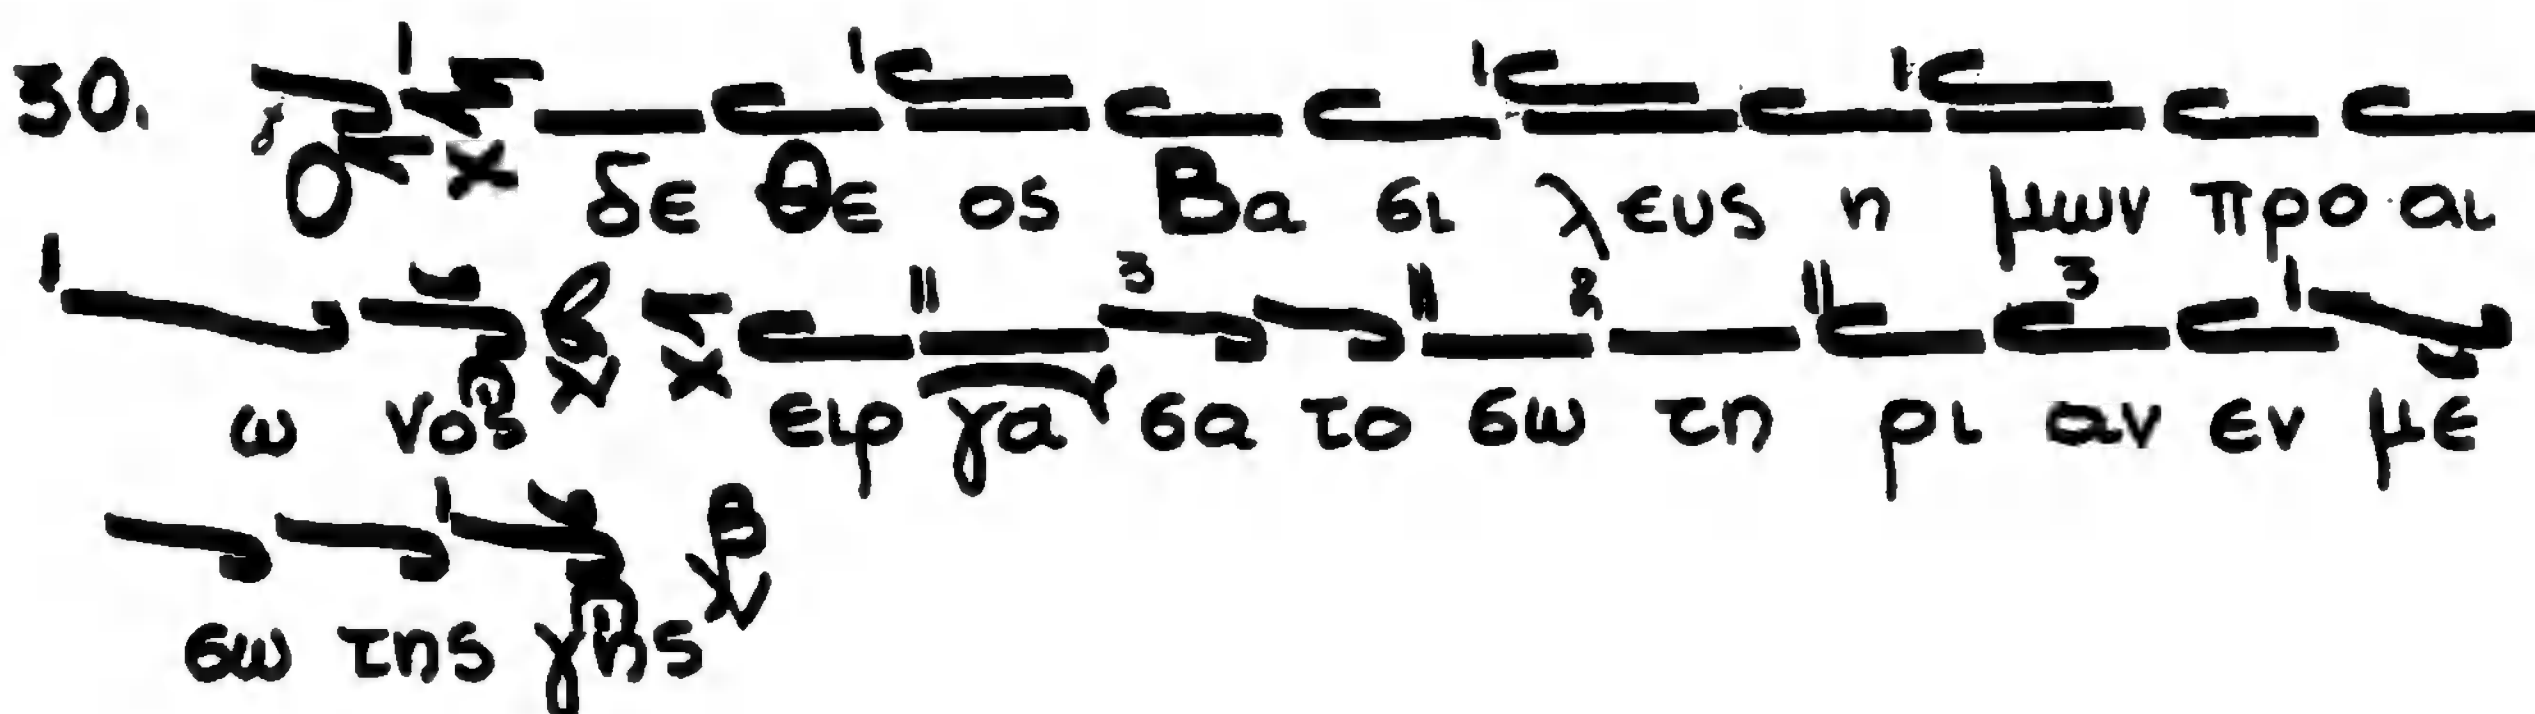 30. Ο δε Θε ος Βα σι λευς η μων προ αι
ω νος ειρ γα σα το σω τη ρι αν εν με
σω της γης